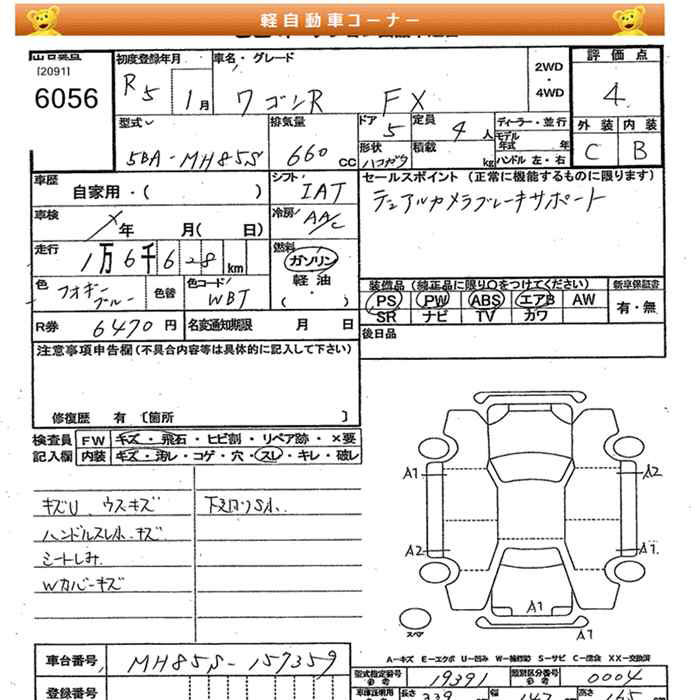 軽自動車コーナー
[2091]
6056
初度登録年月
R5
1月
車名・グレード
ワゴンR FX
2WD
・
4WD
評価点
4
外装 内装
C B
型式
5BA-MH85S
排気量
660 CC
ドア
5
定員
4 人
形状
ハコガタ
積載
kg
ディーラー・並行
モデル年式 年
ハンドル 左・右
車歴
自家用・( )
シフト
IAT
冷房
AA/C
車検
年 月( 日)
走行
1万6千628km
燃料
ガソリン
軽油
・
( )
色
フォギーブルー
色替
色コード
WBT
R券
6470円
名変通知期限 月 日
セールスポイント(正常に機能するものに限ります)
デュアルカメラブレーキサポート
装備品(純正品に限り〇をつけてください)
新車保証書
PS PW ABS エアB AW
SR ナビ TV カワ
有・無
後日品
注意事項申告欄(不具合内容等は具体的に記入して下さい)
修復歴 有〔箇所 〕
検査員
記入欄
FW キズ・飛石・ヒビ割・リペア跡・×要
内装 キズ・汚レ・コゲ・穴・スレ・キレ・破レ
キズU ウスキズ
ハンドルスレ小 キズ
シートしみ
Wカバーキズ
下廻りS小
A1 A2
A2 A1
A1
スペア
A-キズ E-エクボ U-凹み W-補修跡 S-サビ C-腐食 XX-交換済
車台番号
MH85S-157359
登録番号
型式指定番号
19391
類別区分番号
0004
長さ
339
幅
147
高さ
165